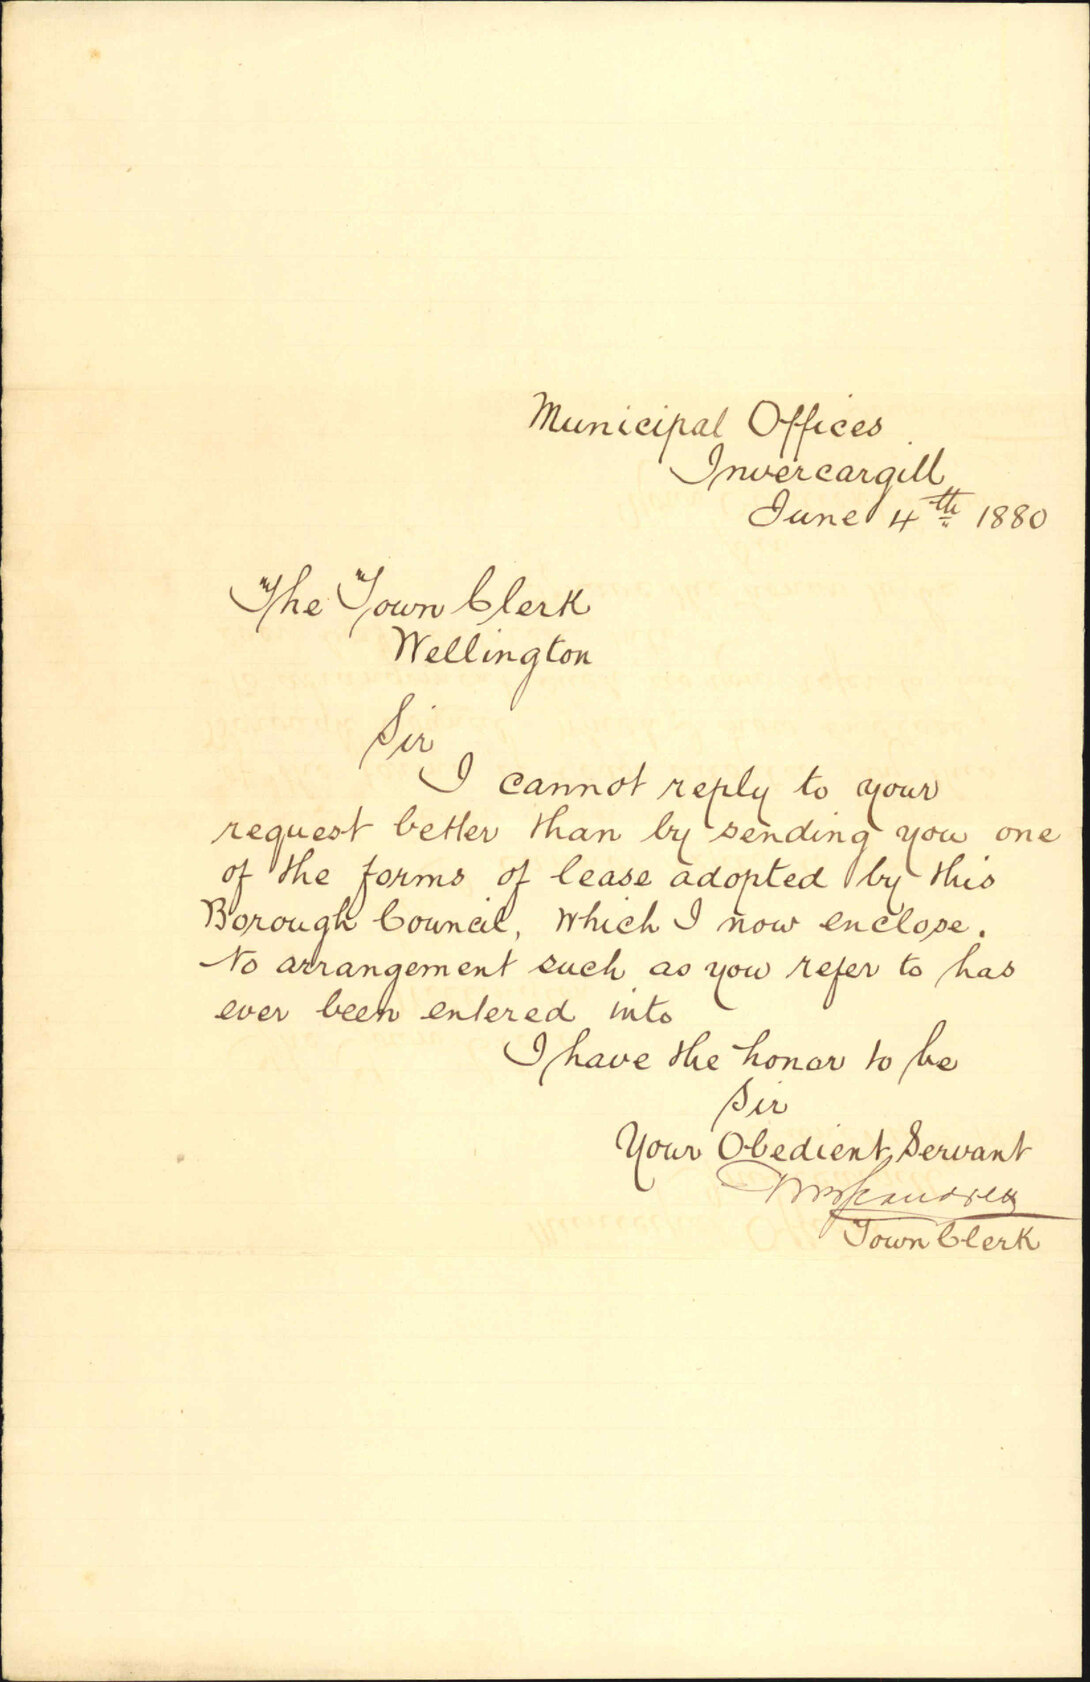 Municipal Offices
Invercargill
June 4th 1880
The Town Clerk
Wellington
Sir
I cannot reply to your
request better than by sending you one
of the forms of lease adopted by this
Borough Council, which I now enclose.
No arrangement such as you refer to has
ever been entered into
I have the honor to be
Sir
Your Obedient Servant
Town Clerk